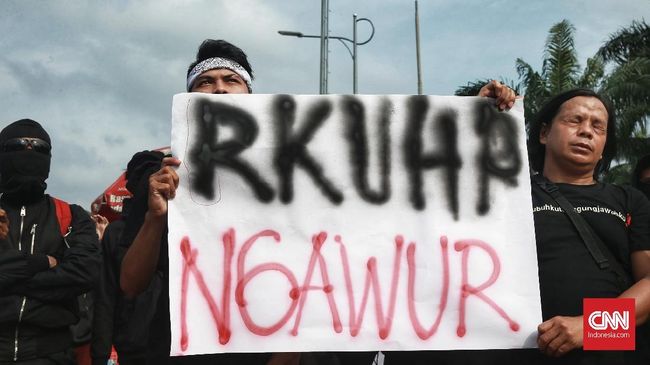 RKUHP
NGAWUR
CNN
Indonesia.com